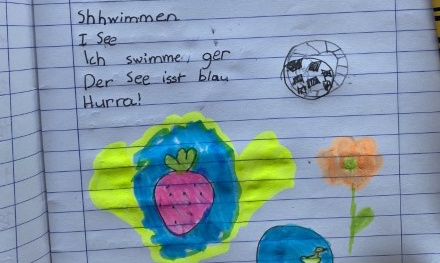 Shhwimmen
I See
Ich swimme, ger
Der See isst blau
Hurra!